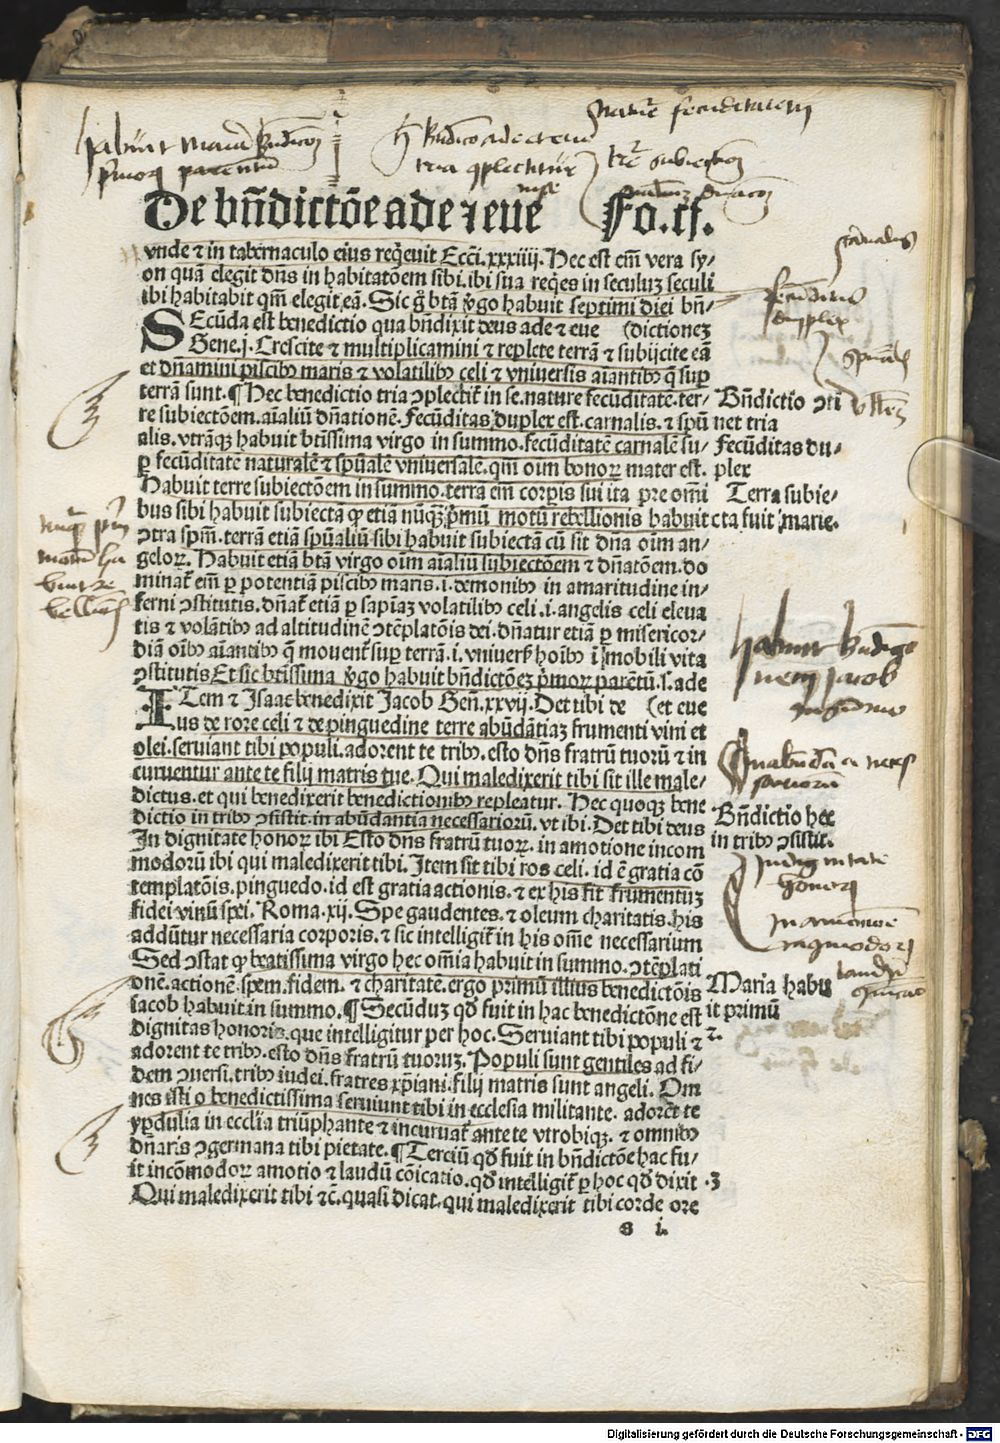 De bñdictõe ade ⁊ eue Fo.cſ.
vnde ⁊ in tabernaculo eius reqͥeuit Ecci̅.xxxiiij. Hec est em̅ vera sy⸗
on qua̅ elegit dñs in habitatõem sibi.ibi sua reqͥes in seculuꝫ seculi
ibi habitabit qm̅ elegit ea̅. Sic gͦ bta̅ ꝟgo habuit septimi diei bñ⸗
SEcu̅da est benedictio qua bñdixit deus ade ⁊ eue (dictioneꝫ
Gene.j. Crescite ⁊ multiplicamini ⁊ replete terra̅ ⁊ subijcite ea̅
et dñamini piscibꝰ maris ⁊ volatilibꝰ celi ⁊ vniuersis aïantibꝰ q̅ suꝑ
terra̅ sunt. ¶ Hec benedictio tria ↄplectit̉ in se.nature fecu̅ditate̅.ter⸗
re subiectõem.aïaliu̅ dñatione̅. Fecu̅ditas duplex est.carnalis.⁊ spu̅
alis.vtra̅qꝫ habuit btissima virgo in summo.fecu̅ditate̅ carnale̅ su⸗
ꝑ fecu̅ditate̅ naturale̅ ⁊ spu̅ale̅ vniuersale.qm̅ oi̅um bonoꝝ mater est.
Habuit terre subiectõem in summo.terra̅ em̅ corꝑis sui ita pre omi̅
bus sibi habuit subiecta̅ ꝙ etia̅ nu̅qꝫ pͥmu̅ motu̅ rebellionis habuit
ↄtra spm̅.terra̅ etia̅ spu̅aliu̅ sibi habuit subiecta̅ cu̅ sit dn̅a oi̅m an⸗
geloꝝ. Habuit etia̅ bta̅ virgo oi̅m aïaliu̅ subiectõem ⁊ dñatõem.do
minat̉ em̅ ꝑ potentia̅ piscibꝰ maris.i.demonibꝰ in amaritudine in⸗
ferni ↄstitutis.dñat̉ etia̅ ꝑ sapiaꝫ volatilibꝰ celi.i.angelis celi eleua
tis ⁊ vola̅tibꝰ ad altitudine̅ ↄte̅platõis dei.dñatur etia̅ ꝑ misericor⸗
dia̅ oi̅bꝰ aïantibꝰ q̅ mouent̉ suꝑ terra̅.i.vniuers̉ hoi̅bꝰ i̅ mobili vita
ↄstitutis Et sic btissima ꝟgo habuit bñdictõeꝫ pͥmoꝝ parentu̅.s.ade
ITem ⁊ Isaac benedixit Jacob Gen̅.xxvij. Det tibi de (et eue
us de rore celi ⁊ de pinguedine terre abu̅da̅tiaꝫ frumenti vini et
olei.seruiant tibi populi.adorent te tribꝰ.esto dñs fratru̅ tuoru̅ ⁊ in
curuentur ante te filij matris tue. Qui maledixerit tibi sit ille male⸗
dictus.et qui benedixerit benedictionibꝰ repleatur. Hec quoqꝫ bene
dictio in tribꝰ ↄsistit.in abu̅dantia necessarioru̅.vt ibi. Det tibi deus
In dignitate honoꝝ ibi Esto dñs fratru̅ tuoꝝ. in amotione incom
modoru̅ ibi qui maledixerit tibi. Item sit tibi ros celi. id e̅ gratia co̅
templatõis.pinguedo.id est gratia actionis.⁊ ex his fit frumentuꝫ
fidei vinu̅ spei. Roma.xij. Spe gaudentes.⁊ oleum charitatis.his
addu̅tur necessaria corporis.⁊ sic intelligit̉ in his om̅e necessarium
Sed ↄstat ꝙ beatissima virgo hec om̅ia habuit in summo.ↄte̅plati
one̅.actione̅.spem.fidem.⁊ charitate̅.ergo primu̅ illius benedictõis
iacob habuit in summo. ¶ Secu̅duꝫ qd̅ fuit in hac benedictõne est
dignitas honoris.que intelligitur per hoc. Seruiant tibi populi ⁊
adorent te tribꝰ.esto dñs fratru̅ tuoruꝫ. Populi sunt gentiles ad fi⸗
dem ↄuersi.tribꝰ iudei.fratres xp̅iani.filij matris sunt angeli. Om
nes isti o benedictissima seruiunt tibi in ecclesia militante. adore̅t te
yꝑdulia in eccl̅ia triu̅phante ⁊ incuruat̉ ante te vtrobiqꝫ. ⁊ omnibꝰ
dñaris ↄgermana tibi pietate. ¶ Terciu̅ qd̅ fuit in bñdictõe hac fu⸗
it inco̅modoꝝ amotio ⁊ laudu̅ co̅icatio.qd̅ intelligit̉ ꝑ hoc qd̅ dixit
Qui maledixerit tibi ⁊c̅.quasi dicat.qui maledixerit tibi corde ore
s i.
Bñdictio ↄti
net tria
Fecu̅ditas du⸗
plex
Terra subie⸗
cta fuit marie.
Bñdictio hec
in tribꝰ ↄsistit.
Maria habu
it primu̅
2.
3
fecunditas
duplex